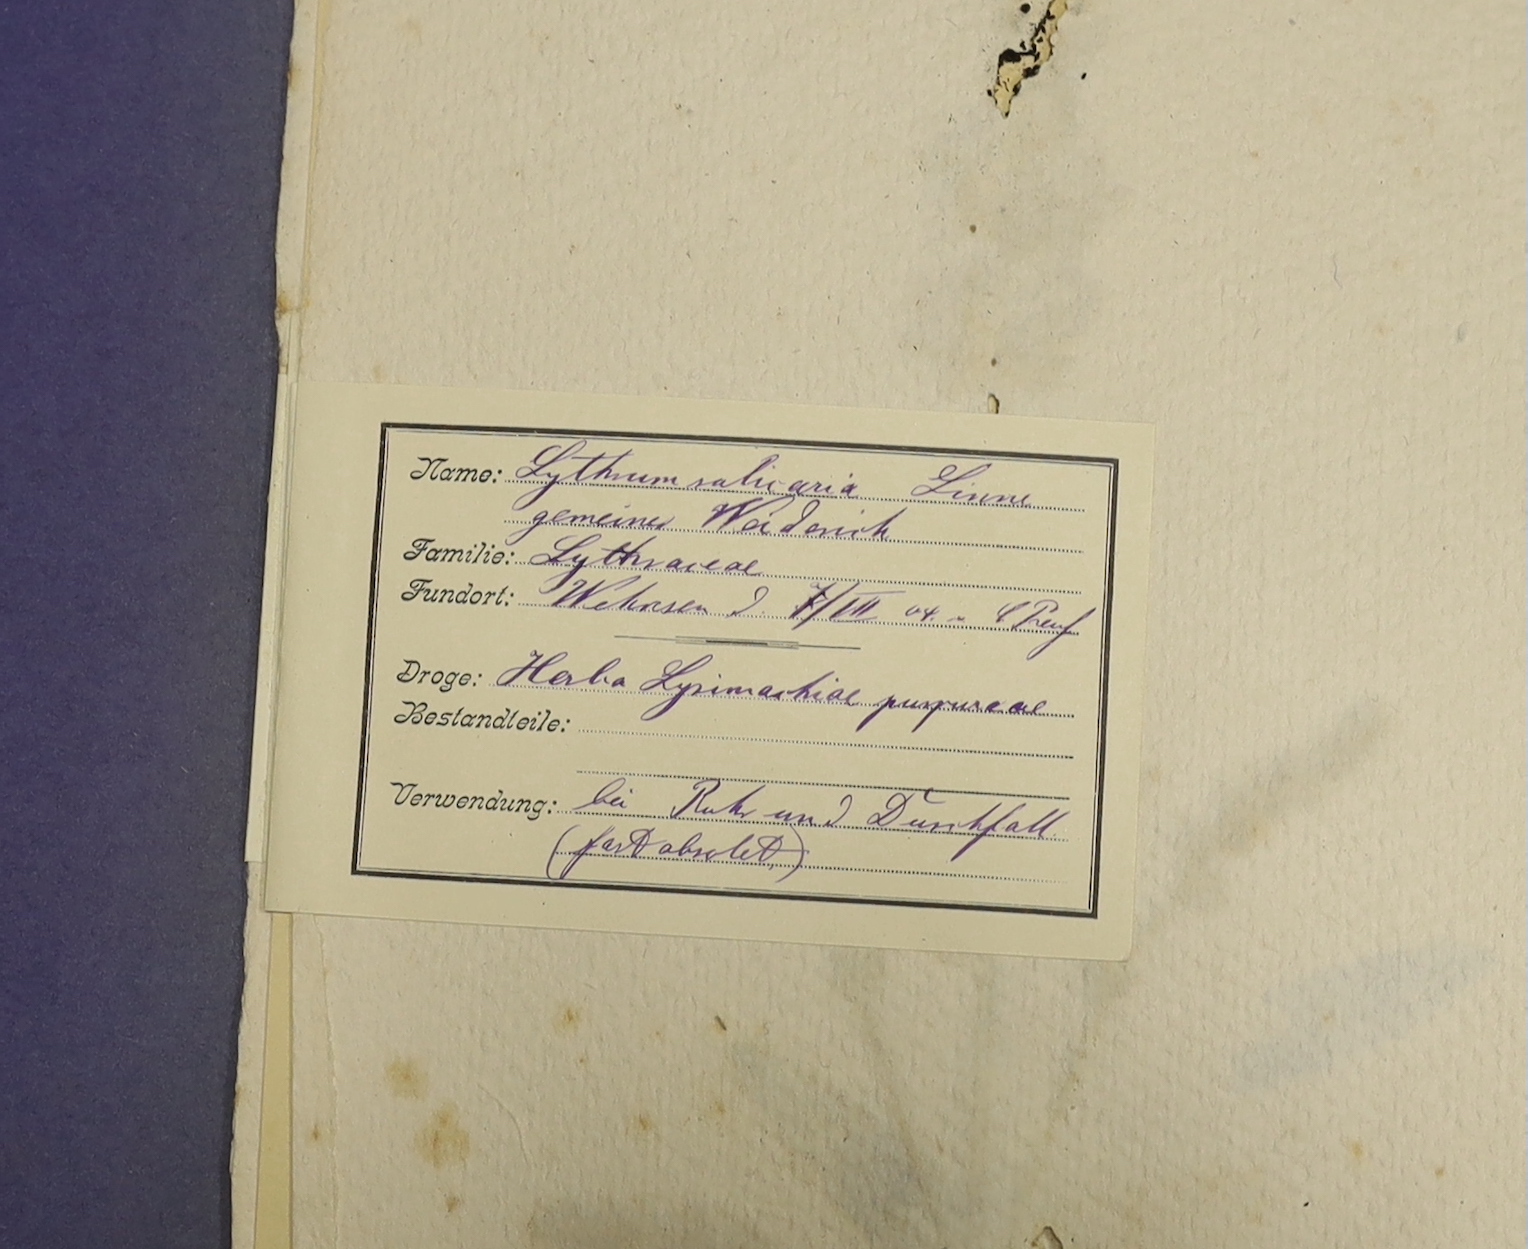 Name: Lythrum salicaria Linne
gemeiner Weiderich
Familie: Lythraceae
Fundort: d. 7/VII 04.
Droge: Herba Lysimachiae purpureae
Bestandteile:
Verwendung: bei Ruhr und Durchfall.
(fast obsolet.)